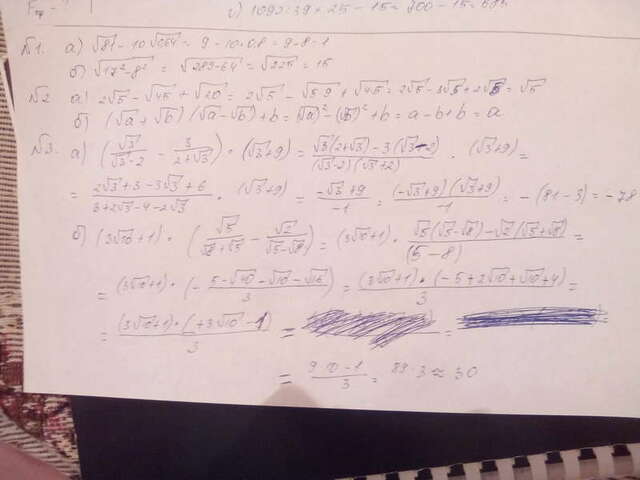 г) 1095:39 + 25 - 15 =
№1. а) √81 - 10√0,64 = 9 - 10·0,8 = 9 - 8 = 1
б) √17² - 8² = √289 - 64 = √225 = 15
№2 а) 2√5 - √45 + √20 = 2√5 - √5·9 + √4·5 = 2√5 - 3√5 + 2√5 = √5
б) (√a + √b)(√a - √b) + b = (√a)² - (√b)² + b = a - b + b = a
№3. а) (√3/(√3-2) - 3/(2+√3)) · (√3+9) = (√3(2+√3) - 3(√3-2))/((√3-2)(√3+2)) · (√3+9) =
= (2√3+3-3√3+6)/(3+2√3-4-2√3) · (√3+9) = (-√3+9)/-1 = ((-√3+9)(√3+9))/-1 = -(81-3) = -78
б) (3√10+1) · (√5/(√8+√5) - √2/(√5-√8)) = (3√10+1) · (√5(√5-√8) - √2(√5+√8))/(5-8) =
= (3√10+1) · (- (5-√40-√10-√16)/3) = ((3√10+1) · (-5+2√10+√10+4))/3 =
= ((3√10+1) · (+3√10-1))/3 = =
= (9·10-1)/3 = 89:3 ≈ 30